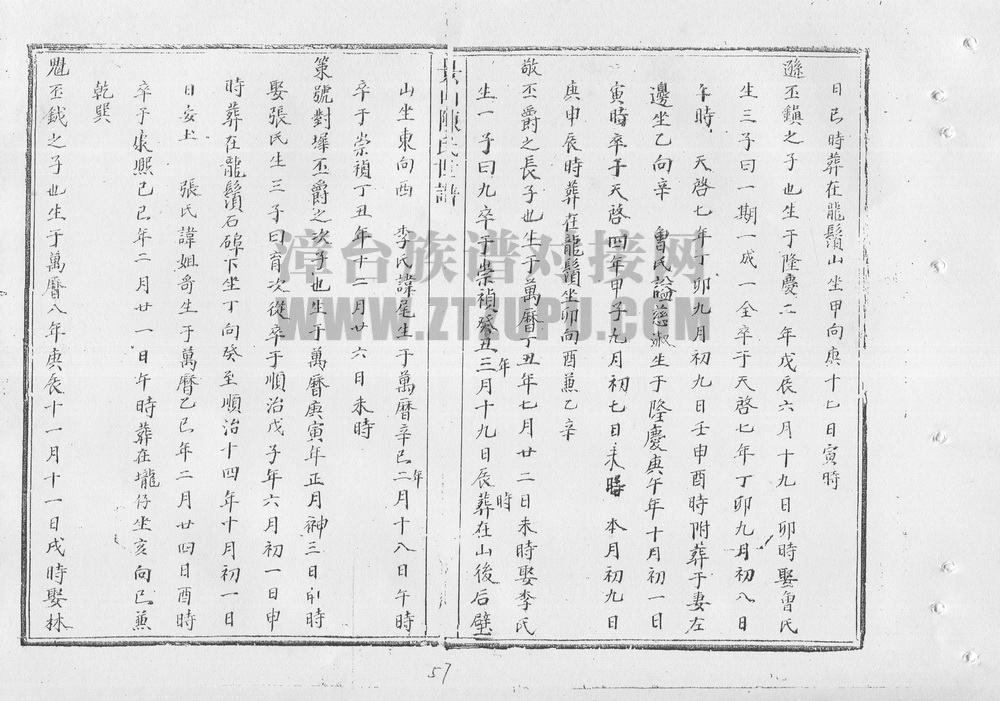 日巳時葬在龍鬚山坐甲向庚十七日寅時
遜丕鎮之子也生于隆慶二年戊辰六月十九日卯時娶魯氏
生三子曰一期一成一全卒于天啓七年丁卯九月初八日
午時 天啓七年丁卯九月初九日壬申酉時附葬于妻左
邊坐乙向辛 魯氏謚慈淑生于隆慶庚午年十月初一日
寅時卒于天啓四年甲子九月初七日未時 本月初九日
庚申辰時葬在龍鬚坐卯向酉兼乙辛
敬丕爵之長子也生于萬曆丁丑年七月廿二日未時娶李氏
生一子曰九卒于崇禎癸丑年三月十九日辰時葬在山後后壁
陳氏世譜
山坐東向西 李氏諱尾生于萬曆辛巳年二月十八日午時
卒于崇禎丁丑年十二月廿六日未時
策號對墀丕爵之次子也生于萬曆庚寅年正月神三日卯時
娶張氏生三子曰育次從卒于順治戊子年六月初一日申
時葬在龍鬚石碎下坐丁向癸至順治十四年十月初一日
日安土 張氏諱姐哥生于萬曆乙巳年二月廿四日酉時
卒于康熙己巳年二月廿一日午時葬在壠仔坐亥向巳兼
乾巽
魁丕鉞之子也生于萬曆八年庚辰十一月十一日戌時娶林
57
漳台族谱对接网
WWW.ZTZUPU.COM